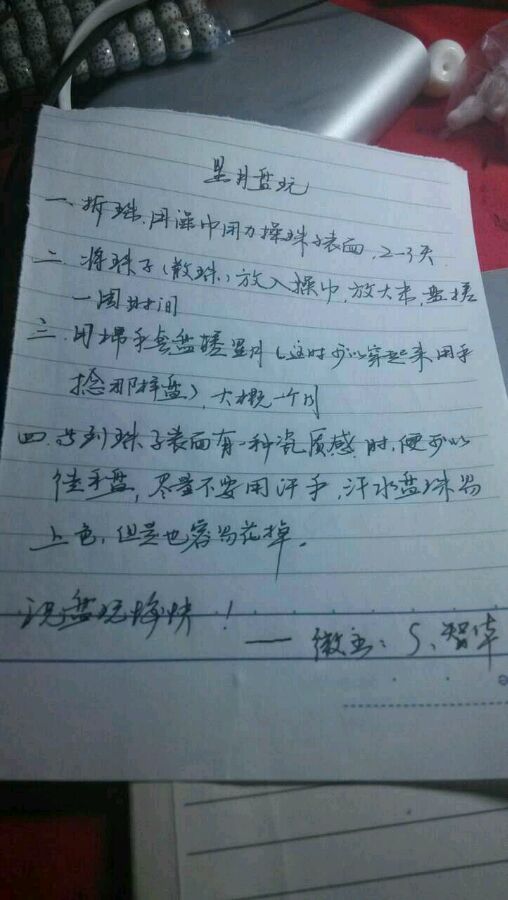 星月盘玩
一、拆珠,用澡巾用力搓珠子表面,2-3天
二、将珠子(散珠)放入搓巾,放大米,盘搓
一周时间
三、用棉手套盘搓星月(这时可以穿起来,用手
捻那样盘),大概一个月
四、当到珠子表面有一种瓷质感时,便可以
徒手盘,尽量不要用汗手,汗水盘珠易
上色,但是也容易花掉。
祝盘玩愉快!
—— 微商: S、智华